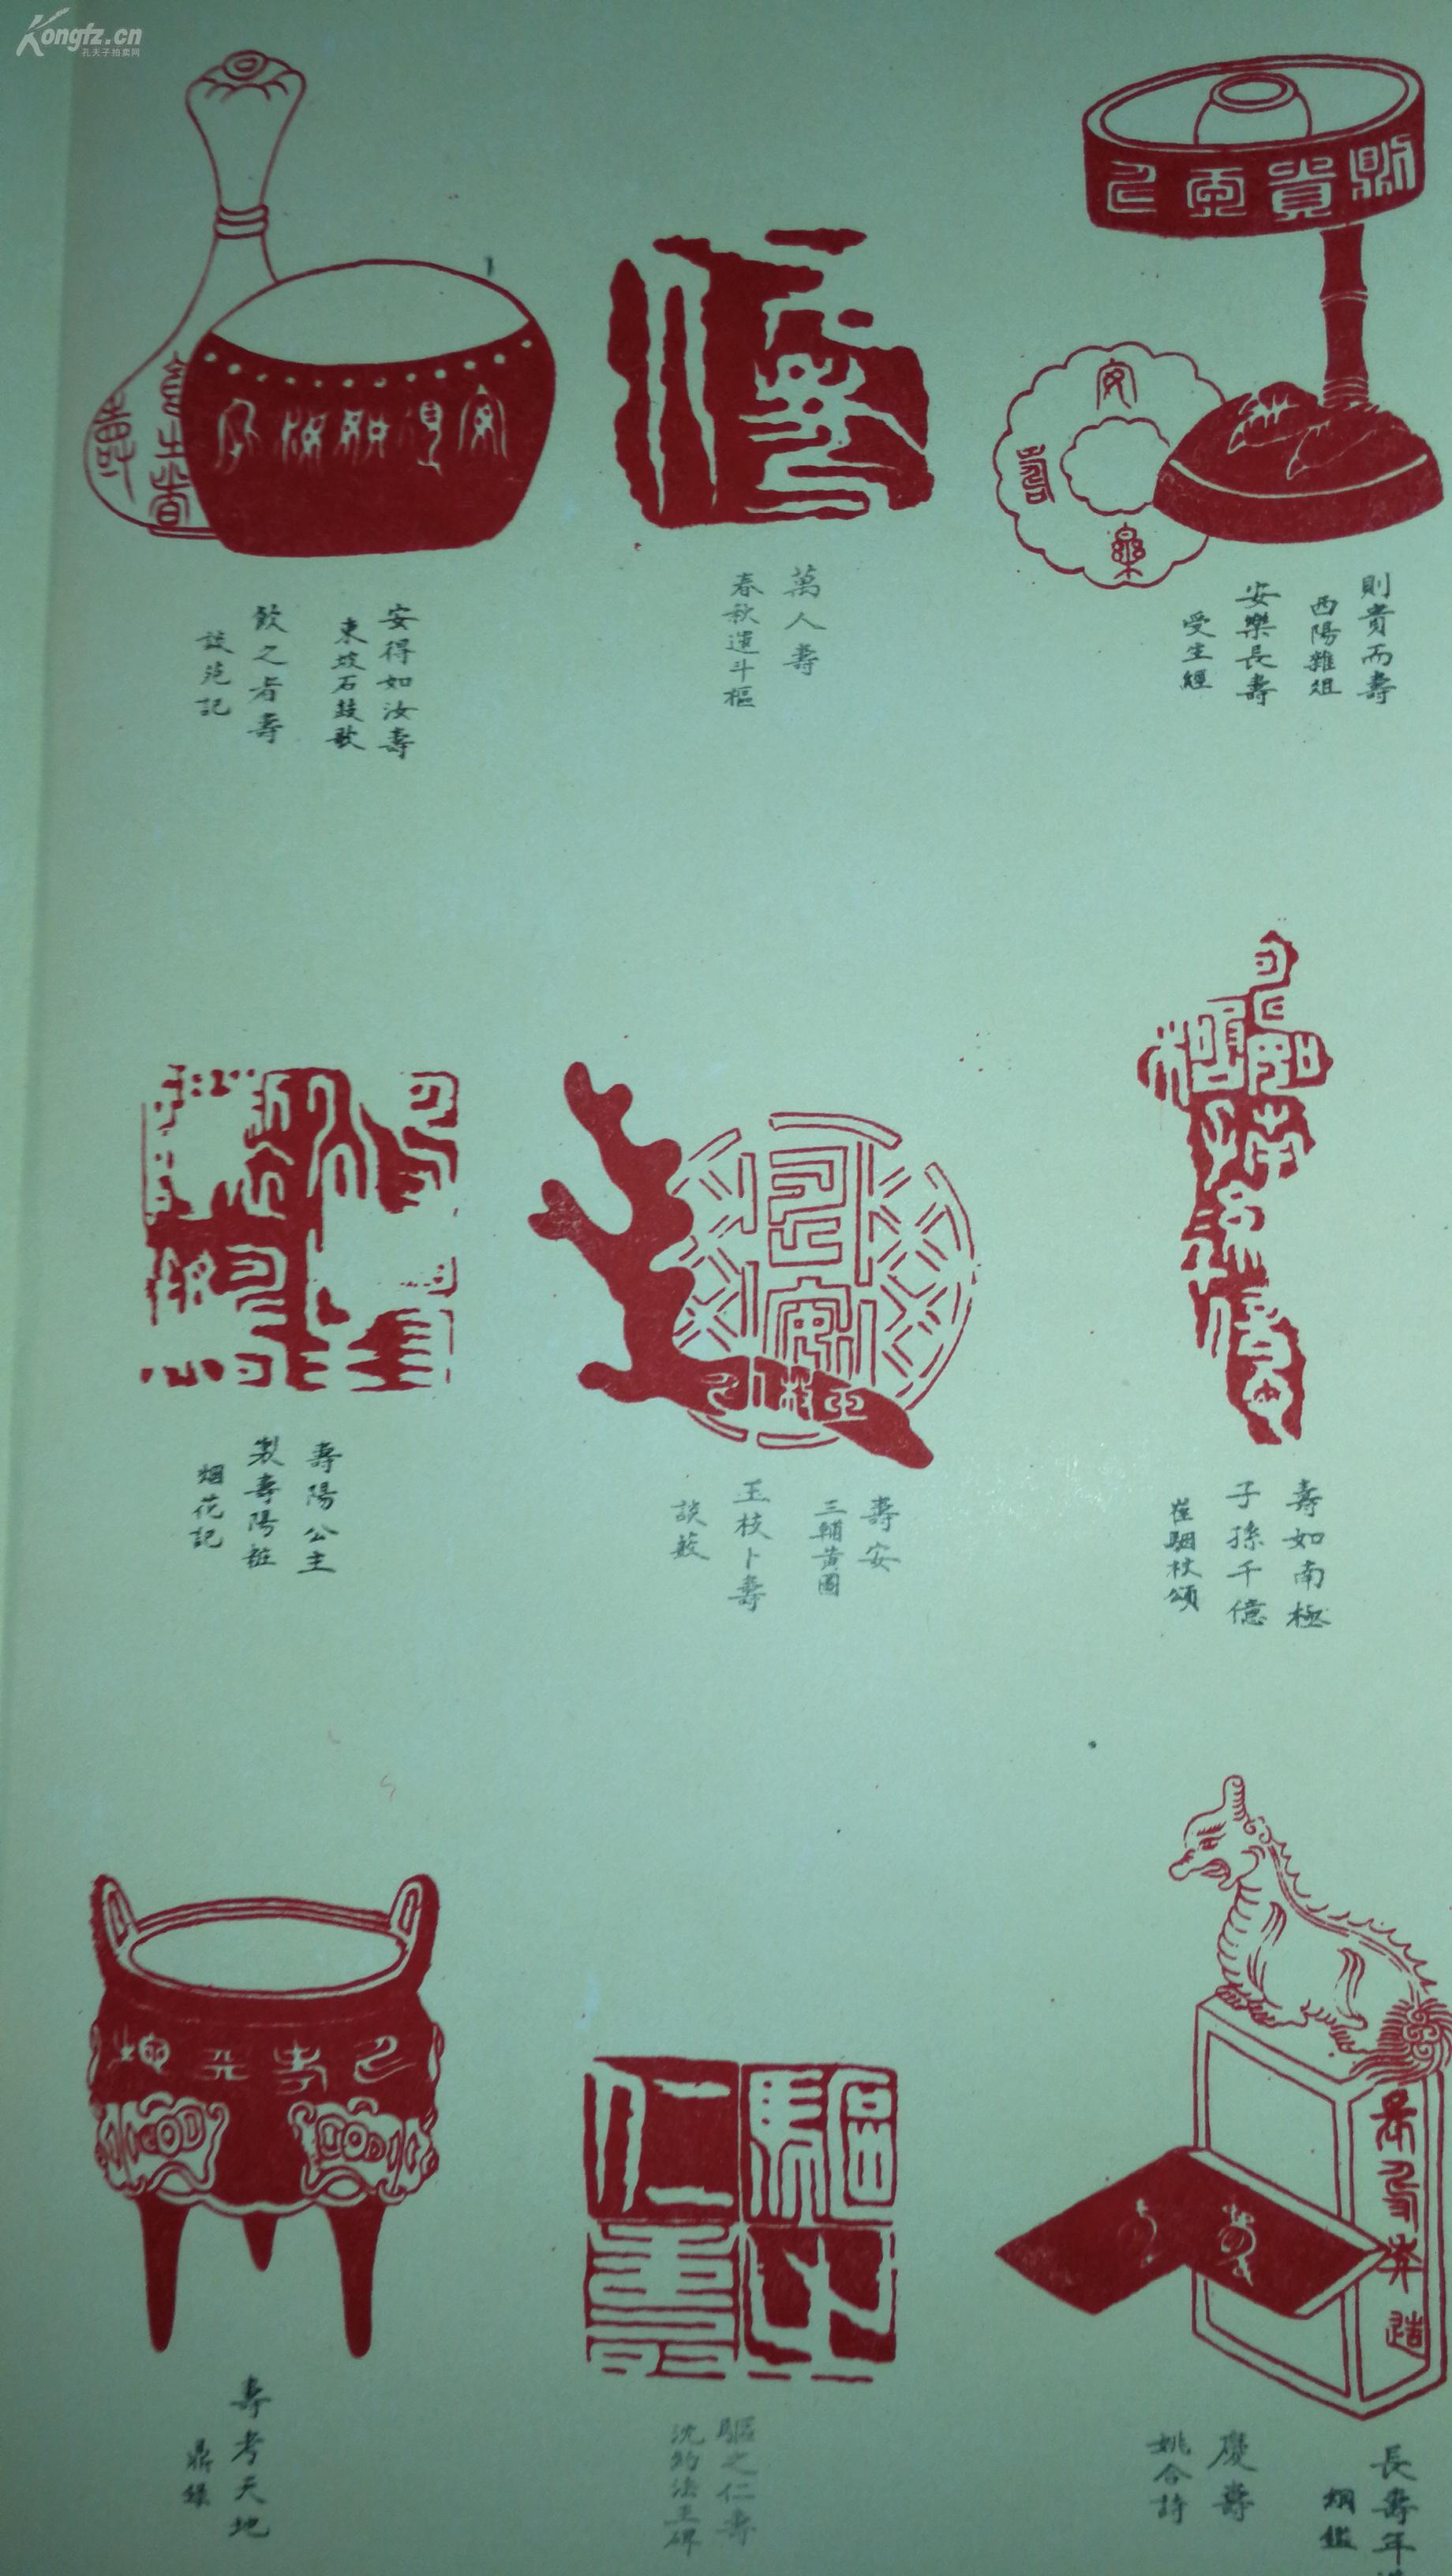 Kongfz.cn
孔夫子拍卖网
則貴而壽
酉陽雜俎
安樂長壽
受生經
萬人壽
春秋運斗樞
安得如汝壽
東坡石鼓歌
飲之者壽
談苑記
壽如南極
子孫千億
崔駰杖頌
壽安
三輔黃圖
玉枝卜壽
談薮
壽陽公主
製壽陽粧
烟花記
長壽年
慶壽
姚合詩
驅之仁壽
沈約法王碑
壽考天地
鼎錄